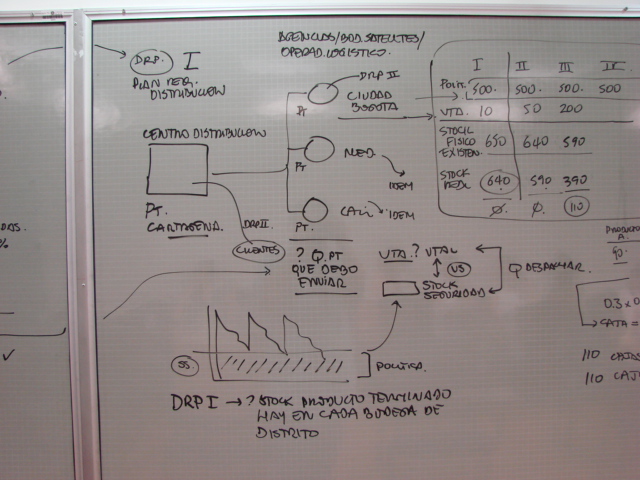 DRP. I
PLAN REQ.
DISTRIBUCION
AGENCIAS/BOD.SATELITES/
OPERAD.LOGISTICO.
DRP II
CIUDAD
BOGOTA
PT
CENTRO DISTRIBUCION
PT.
CARTAGENA.
DRPII.
CLIENTES
MED.
IDEM
PT
CALI
IDEM
PT.
? Q.PT
QUE DEBO
ENVIAR
VTA.? VTAL
VS
STOCK
SEGURIDAD
Q DESPACHAR.
I II III IV
POLIT. 500. 500. 500. 500
VTA. 10 50 200
STOCK
FISICO 650 640 590
EXISTEN.
STOCK
REAL 640 590 390
Ø. Ø. 110
PRODUCTO
A.
90.
0.3 x 0
CAJA =
110 CAJAS
110 CAJ
SS.
POLITICA.
DRP I → ? STOCK PRODUCTO TERMINADO
HAY EN CADA BODEGA DE
DISTRITO
DAS.
%